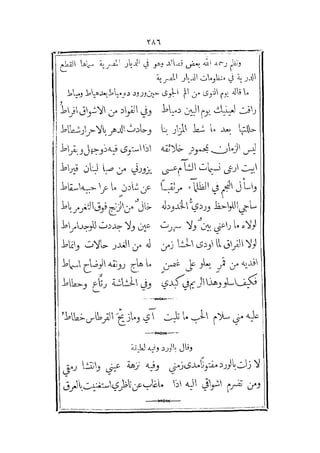 ٣٨٦
ونظم رحمه الله بعض قصائد وهو في الديار المصرية سماها القطع
الدرية في منظومات الديار المصرية
ما قاله يوم النوى من الم الجوى حين ورود دومياط بعد هياط ومياط
راقت لعينيك يوم البين دمياط وفي الفواد من الاشواق افراط
حللتها بعد ما شط المزار بنا وحادث الدهر بالاحرار شطاط
ليس الزمان بمحمود خلائقه اذا استوى فيه ذو جهل وبقراط
ابيت ارعى نسيمات الشآم عسى يزورني من صبا لبنان قيراط
واسأل النجم في الظلماء مرتقبًا عن شادن ما عرا حبيه اسقاط
ساجي اللواحظ وردي الخدود له خال من الزنج فوق الثغر مرباط
لولاه ما راعني بين ولا سهرت عين ولا جددت للوجد امراط
لولا الفراق لما اودى الحشا زمن له من الغدر حالات وانماط
افديه من قمر يعلو على غصن ما هاج رونقه الوضاح اسماط
فكيف اسلو وهذا الريم في كبدي وفي الحشاشة رتاع وحطاط
عليه مني سلام الحب ما تليت آي وما زيّح القرطاس خطاط
وقال بالورد وفيه لطيفة
لا زلت بالورد مفتونًا مدى زمني وفيه نزهة عيني وانتشا رمقي
ومن تضرم اشواقي اليه اذا ما غاب عن ناظري استغنيت بالعرق